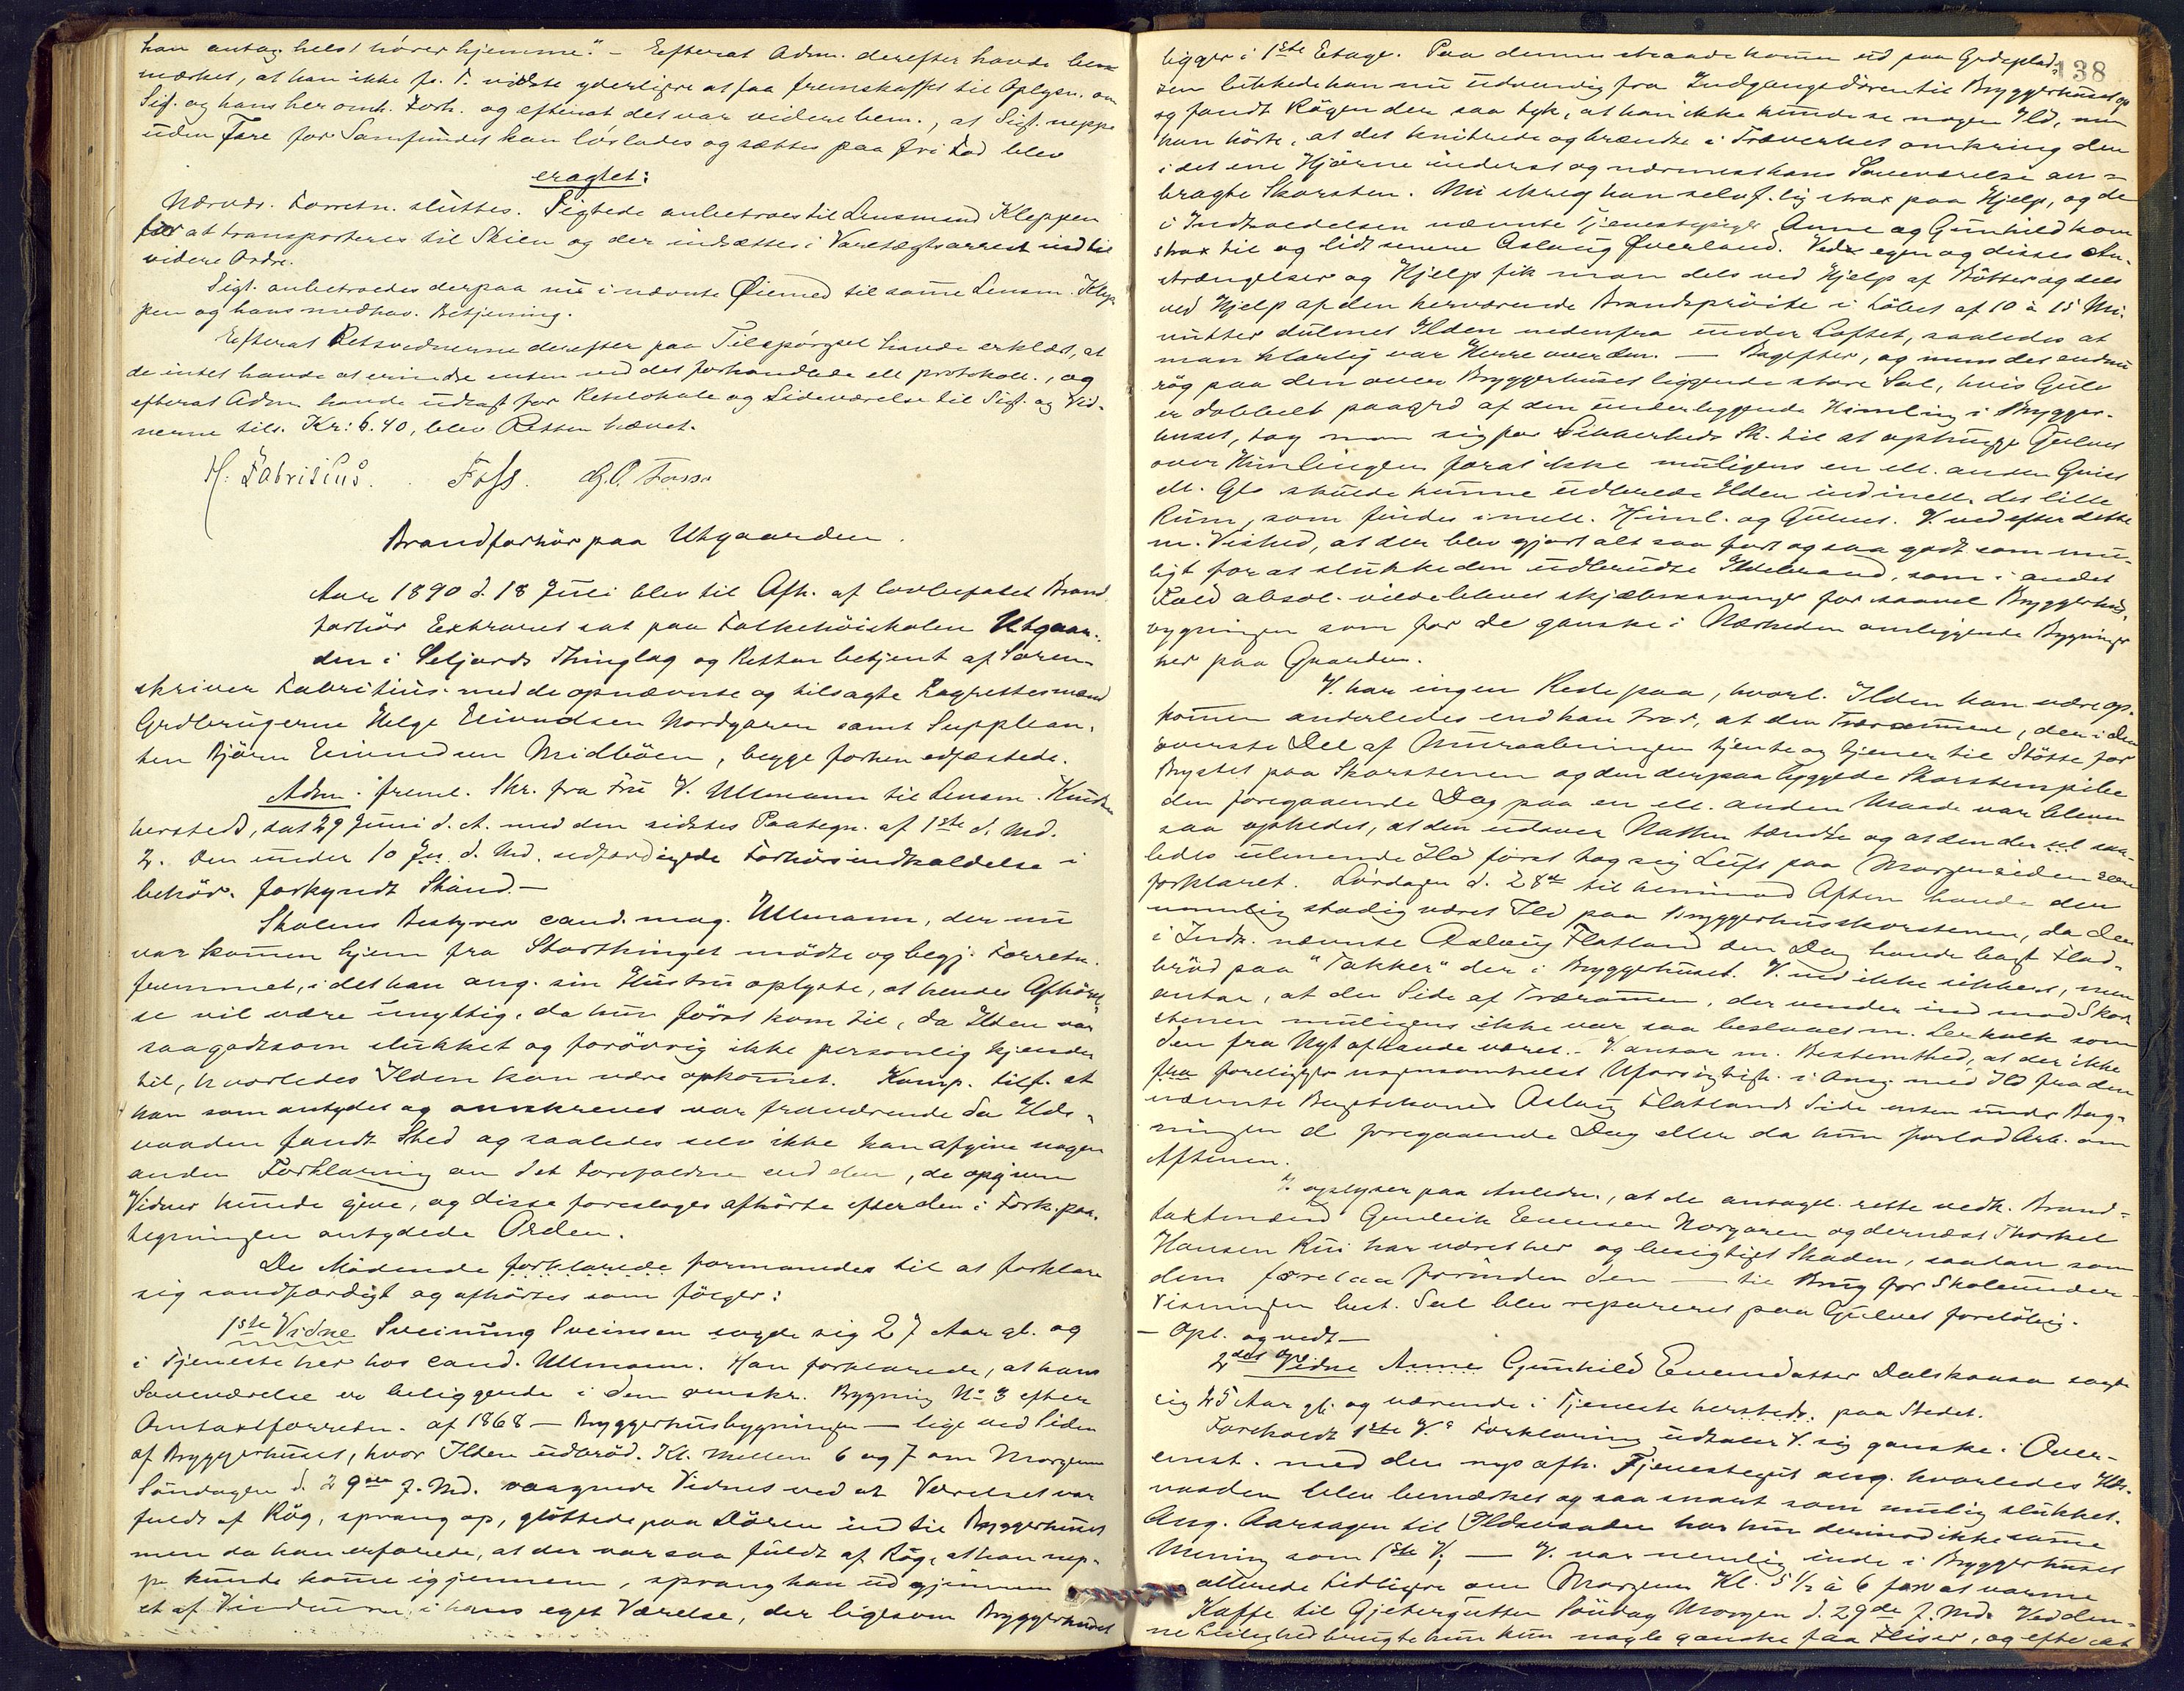 han antag. helst hører hjemme." – Efterat Adm. derefter havde bem
mærket, at han ikke p. T. vidste yderligere at faa fremskaffet til Oplysn. om
Sigt. og hans her omh. Forh. og efterat det var videre bem., at Sigt. neppe
uden Fare for Samfundet kan løslades og sættes paa fri Fod blev
eragtet:
Nærvær. Forretn. sluttes. Sigtede anbetroes til Lensmand Kleppen
for at transporteres til Skien og der indsættes i Varetægtsarrest indtil
videre Ordre.
Sigt. anbetroedes derpaa nu i nævnte Øiemed til samme Lensm. Klep
pen og hans medhav. Betjening.
Efterat Retsvidnerne derefter paa Tilspørgsel havde erklæret, at
de intet havde at erindre enten ved det forhandlede ell. protokoll., og
efterat Adm. havde udlagt for Retslokale og Sideværelse til Sigt. og Vid-
nerne tils. Kr: 6.40, blev Retten hævet.
H. Fabritius. Foss.
Brandforhør paa Utgaarden.
Aar 1890 d. 18 Juli blev til Afh. af lovbefalet Brand
forhør Extraret sat paa Folkehøiskolen Utgaar-
den i Seljords Thinglag og Retten betjent af Soren-
skriver Fabritius med de opnævnte og tilsagte Lagrettesmænd
Grdbrugerne Helge Eivindsen Nordgaren samt Supplean-
ten Bjørn Eivindsen Midbøen, begge forhen edfæstede.
Adm. freml. Skr. fra Fru V. Ullmann til Lensm.
hersteds, dat 29 Juni d. A. med den sidstes Paategn. af 1ste d. Md.
2. Den under 10 ds. d. Md. udfærdigede Forhørsindkaldelse i
behør. forkyndt Stand. –
Skolens Bestyrer cand. mag. Ullmann, der nu
var kommen hjem fra Storthinget mødte og begj. Forretn.
fremmet, idet han ang. sin Hustru oplyste, at hendes Afhørel-
se vil være unyttig, da hun først kom til, da Ilden var
saagodtsom slukket og forøvrig ikke personlig kjender
til, hvorledes Ilden kan være opkommet. Komp. tilf. at
han som antydet og omskrevet var fraværende da Ilds-
vaaden fandt Sted og saaledes selv ikke kan afgive nogen
anden Forklaring om det Forefaldne end den, de opgivne
Vidner kunde give, og disse foresloges afhørte efter den i Fork. paa-
tegningen antydede Orden.
De Mødende forklarede formanedes til at forklare
sig sandfærdigt og afhørtes som følger:
1ste Vidne Sveinung Sveinsen sagde sig 27 Aar gl. og
i Tjeneste her hos cand. Ullmann. Han forklarede, at hans
Soveværelse er beliggende i den omskr. Bygning No 3 efter
Omtaxtforretn. af 1868 – Bryggerhusbygningen – lige ved Siden
af Bryggerhuset, hvor Ilden udbrød. Kl. mellem 6 og 7 om Morgenen
Søndagen d. 29de f. Md. vaagnede Vidnet ved at Værelset var
fuldt af Røg, sprang op, gløttede paa Døren ind til Bryggerhuset
men da han erfarede, at der var saa fuldt af Røg, at han nep-
pe kunde komme igjennem, sprang han ud gjennem
et af Vinduerne i hans eget Værelse, der ligesom Bryggerhuset
138
ligger i 1ste Etage. Paa denne Maade kommen ud paa Grdsplad-
sen lukkede han nu udvendig fra Indgangsdøren til Bryggerhuset op
og fandt Røgen der saa tyk, at han ikke kunde se nogen Ild, men
han hørte, at det knitrede og brændte i Træverket omkring den
i det ene Hjørne inderst og nærmest hans Soveværelse an-
bragte Skorsten. Nu skreg han selvf.lig strax paa Hjelp, og de
i Indkaldelsen nævnte Tjenestepiger Anne og Gunhild kom
strax til og lidt senere Aslaug Øverland. Ved egen og disses An-
strængelser og Hjelp fik man dels ved Hjelp af Bøtter og dels
ved Hjelp af den herværende Brandsprøite i Løbet af 10 à 15 Mi-
nutter dulmet Ilden nedenfra under Loftet, saaledes at
man klarlig var Herre over den. – Bagefter, og mens det endnu
røg paa den over Bryggerhuset liggende store Sal, hvis Gulv
er dobbelt paagrd af den underliggende Himling i Brygger-
huset, tog man sig for Sikkerheds Sk. til at ophugge Gulvet
over Himlingen forat ikke muligens en ell. anden Gnist
ell. Glo skulde kunne udbrede Ilden ind imell. det lille
Rum, som findes imell. Himl. og Gulvet. V. ved efter dette
m. Vished, at der blev gjort alt saa fort og saa godt som mu-
ligt for at slukke den udbrudte Ildebrand, som i andet
Fald absol. vilde blevet skjæbnesvanger for saavel Bryggerhus-
bygningen som for de ganske i Nærheden omliggende Bygninger
her paa Gaarden.
V. har ingen Rede paa, hvorl. Ilden kan være op-
kommen anderledes end han tror, at den Trærammen, der i den
øverste Del af Muraabningen tjente og tjener til Støtte for
Brystet paa Skorstenen og den derpaa byggede Skorstenspibe
den foregaaende Dag paa en ell. anden Maade var bleven
saa ophedet, at den udover Natten tændte og at den der saa-
ledes ulmende Ild først tog sig Luft paa Morgensiden som
forklaret. Lørdagen d. 28de til henimod Aften havde der
nemlig stadig været Ild paa Bryggerhusskorstenen, da den
i Indk. nævnte Aslaug Flatland den Dag havde bagt Flad-
brød paa "Takker" der i Bryggerhuset. V. ved ikke sikkert, men
antar, at den Side af Trærammen, der vender ind mod Skor
stenen muligens ikke var saa beslaaet m. Ler kalk som
den fra Nyt af havde været. – V. antar m. Bestemthed, at der ikke
foreligger nogensomhelst Uforsigtigh. i Omg. med Ild fra den
nævnte Bagstekones Aslaug Flatlands Side enten under Bag-
ningen d. foregaaende Dag eller da hun forlod Arb. om
Aftenen.
V. oplyser paa Anledn., at de antagel. rette vedk. Brand-
taxtmænd Gunleik Evensen Norgaren og dernæst Thorkel
Hansen Rui har været her og besigtiget Skaden, saadan som
den forelaa forinden den – til Brug for Skoleunder-
visningen best. Sal blev repareret paa Gulvet foreløbig.
– Opl. og vedt –
2det Vidne Anne Gunhild Evensdatter Dalskaasa sagde
sig 25 Aar gl. og værende i Tjeneste hersteds paa Stedet.
Foreholdt 1ste V.s Forklaring udtaler V. sig ganske i Over-
enst. med den nys afh. Tjenestegut ang. hvorledes Ilds-
vaaden blev bemærket og saa snart som mulig slukket.
Ang. Aarsagen til Ildsvaaden har hun derimod ikke samme
Mening som 1ste V; – V. var nemlig inde i Bryggerhuset
allerede tidligere om Morgenen Kl. 5 1/2 à 6 for at varme
Kaffe til Gjetergutten Søndag Morgen d. 29de f. Md. Ved den-
ne Leilighed brugte hun kun nogle ganske faa Fliser, og efter at